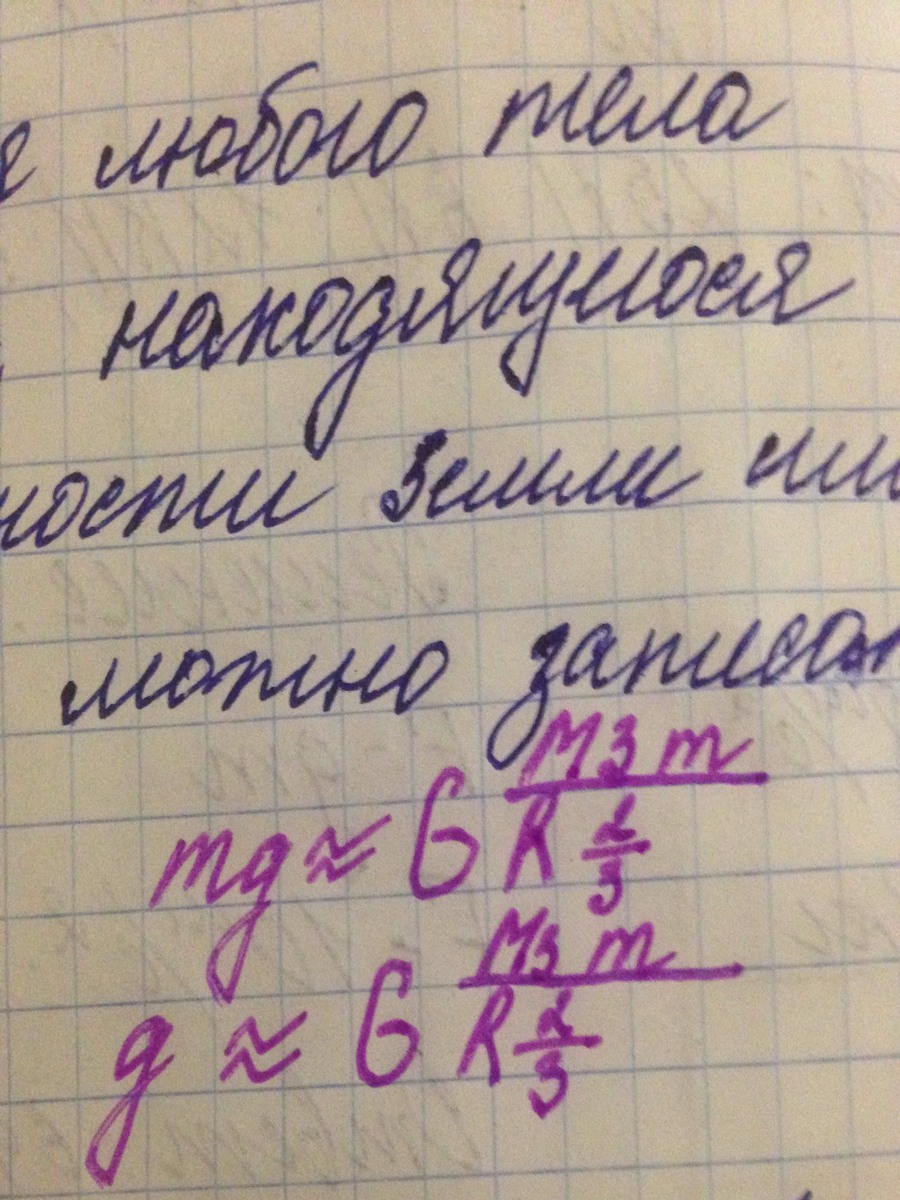 я любого тела
находящегося
ности Земли или
можно записат
mg ≈ G \frac{M_3 m}{R \frac{2}{3}}
g ≈ G \frac{M_3 m}{R \frac{2}{3}}